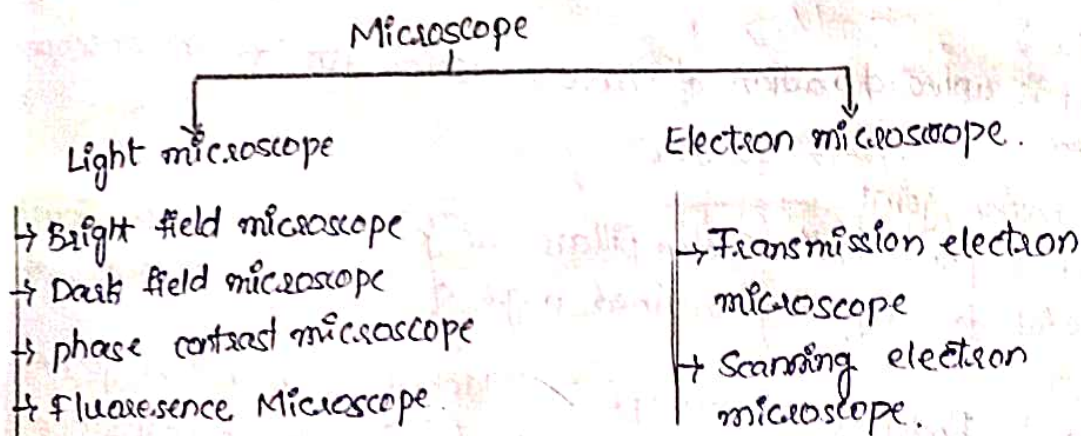 Microscope
Light microscope
Electron microscope.
→ Bright field microscope
→ Dark field microscope
→ phase contrast microscope
→ Fluoresence Microscope.
→ Transmission electron
microscope
→ Scanning electron
microscope.